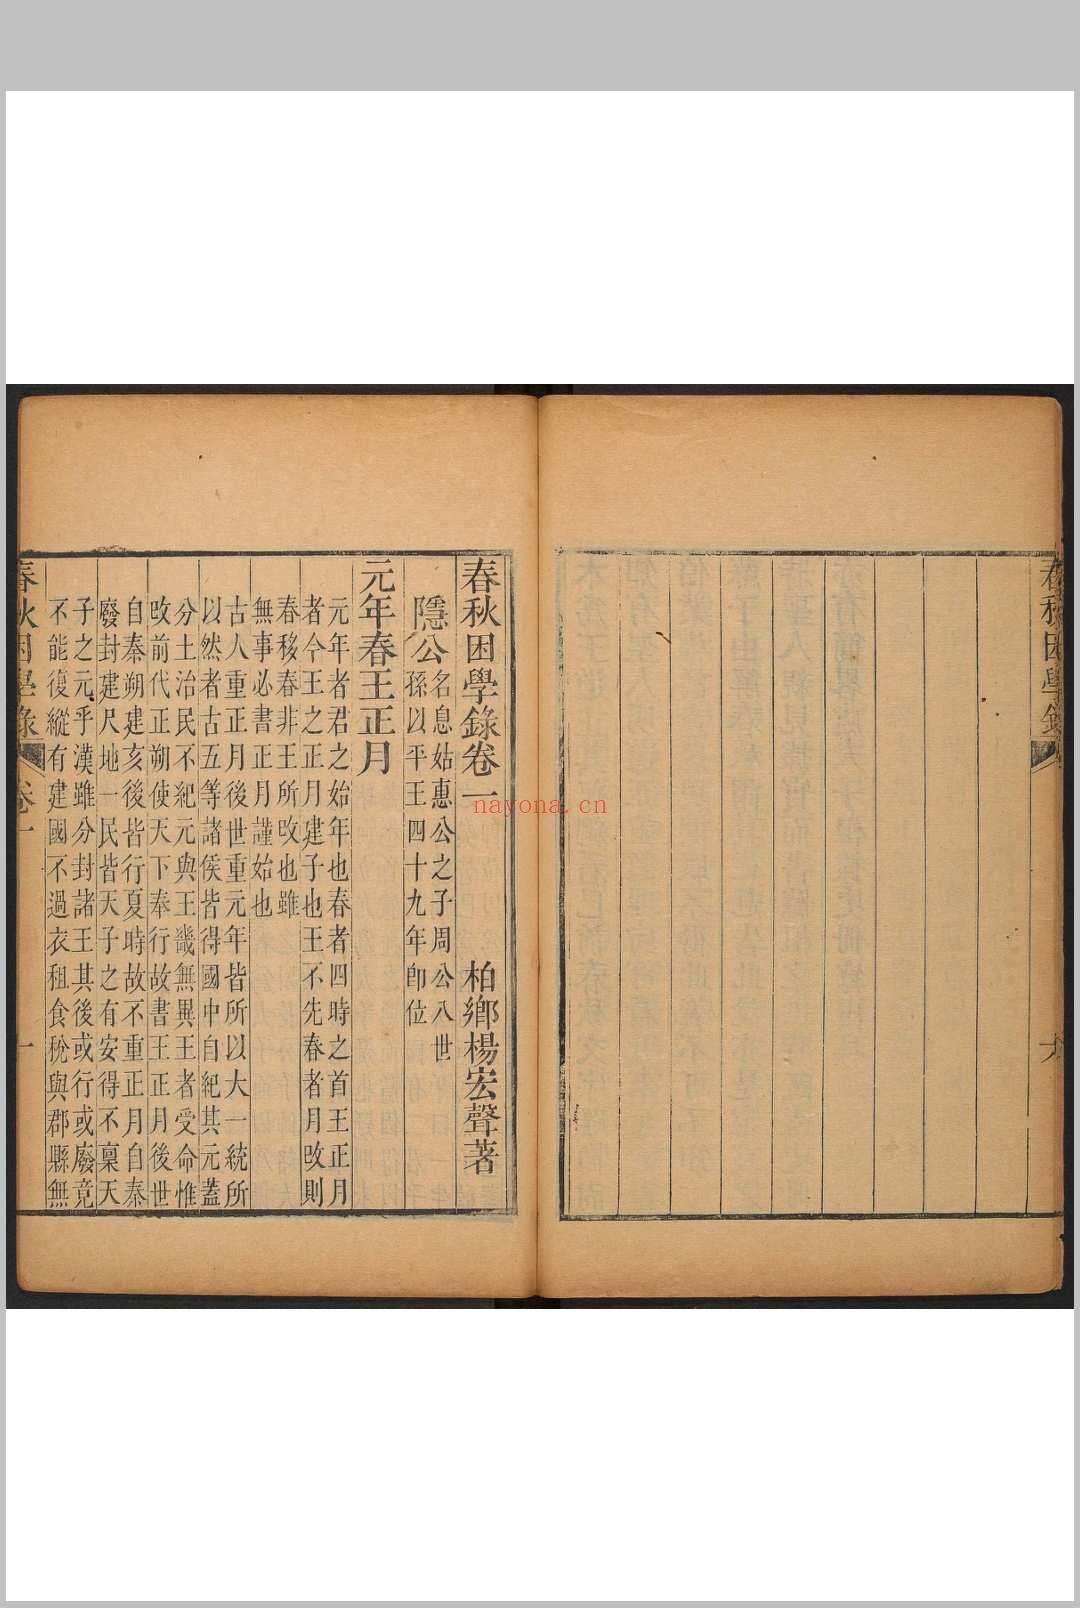 春秋困學錄
六
春秋困學錄卷一
柏鄉楊宏聲著
隱公名息姑惠公之子周公八世
孫以平王四十九年卽位
元年春王正月
元年者君之始年也春者四時之首王正月
者今王之正月建子也王不先春者月改則
春移春非王所改也雖
無事必書正月謹始也
古人重正月後世重元年皆所以大一統所
以然者古五等諸侯皆得國中自紀其元蓋
分土治民不紀元與王畿無異王者受命惟
改前代正朔使天下奉行故書王正月後世
自秦朔建亥後皆行夏時故不重正月自秦
廢封建尺地一民皆天子之有安得不稟天
子之元乎漢雖分封諸王其後或行或廢竟
不能復縱有建國不過衣租食稅與郡縣無
春秋困學錄
卷一
一
nayona.cn